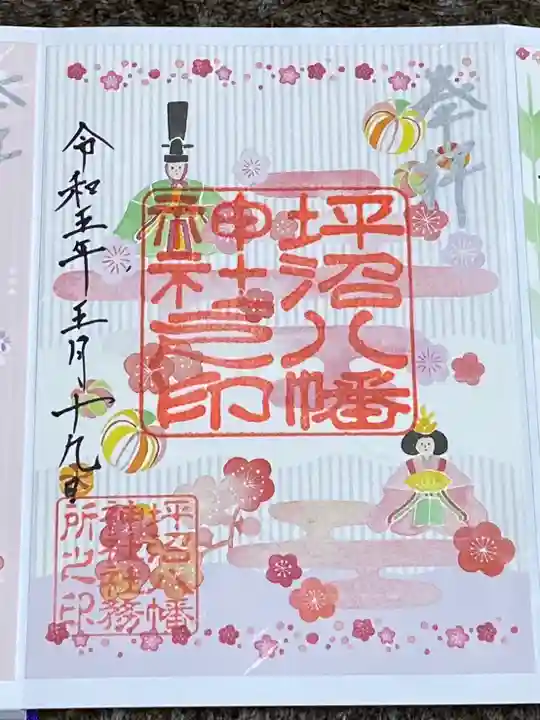 奉拝
坪沼八幡
神社之印
令和五年五月十九日
坪沼八幡
神社社務
所之印